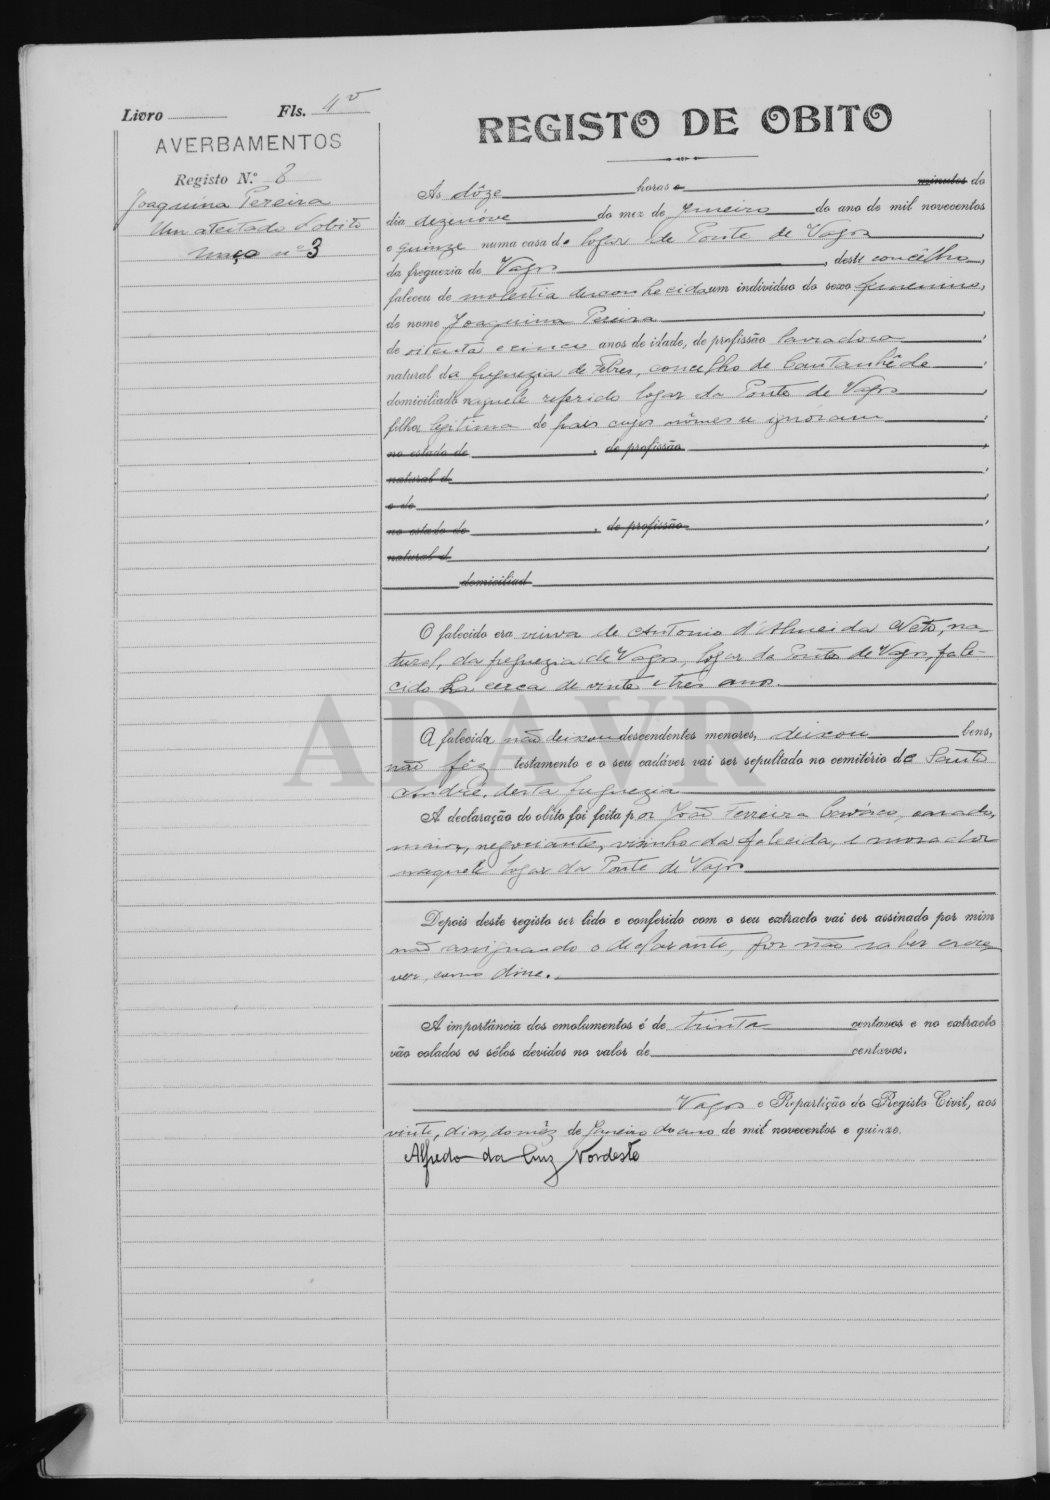 Livro Fls. 4v
AVERBAMENTOS
Registo N.º 8
Joaquina Pereira
Um atestado d'obito
maço nº 3
REGISTO DE OBITO
Ás dôze horas e minutos do
dia dezenóve do mez de Janeiro do ano de mil novecentos
e quinze numa casa do logar de Ponte de Vagos,
da freguezia de Vagos, deste concêlho,
faleceu de molestia desconhecida um individuo do sexo femenino,
de nome Joaquina Pereira,
de oitenta e cinco anos de idade, de profissão lavradora,
natural da freguezia de Febres, concelho de Cantanhêde
domiciliada naquele referido logar da Ponte de Vagos
filha legitima de paes cujos nômes se ignoram,
no estado de , de profissão ,
natural d ,
e de ,
no estado de , de profissão ,
natural d ,
domiciliad
O falecido era viuva de Antonio d'Almeida Neto, na-
tural, da freguezia de Vagos, logar da Ponte de Vagos, fale-
cido ha cerca de vinte e tres anos.
A falecida não deixou descendentes menores, deixou bens,
não fêz testamento e o seu cadáver vai ser sepultado no cemitério de Santo
André, desta freguezia
A declaração do obito foi feita por João Ferreira, casado,
maior, negociante, visinho da falecida, e morador
naquele logar da Ponte de Vagos
Depois deste registo ser lido e conferido com o seu extracto vai ser assinado por mim
não assignando o declarante, por não saber escre-
ver, como disse.
A importância dos emolumentos é de trinta centavos e no extracto
vão colados os sêlos devidos no valor de centavos.
Vagos e Repartição do Registo Civil, aos
vinte, dias, do mês de Janeiro do ano de mil novecentos e quinze.
Alfredo da Cruz Nordeste
ADAVR